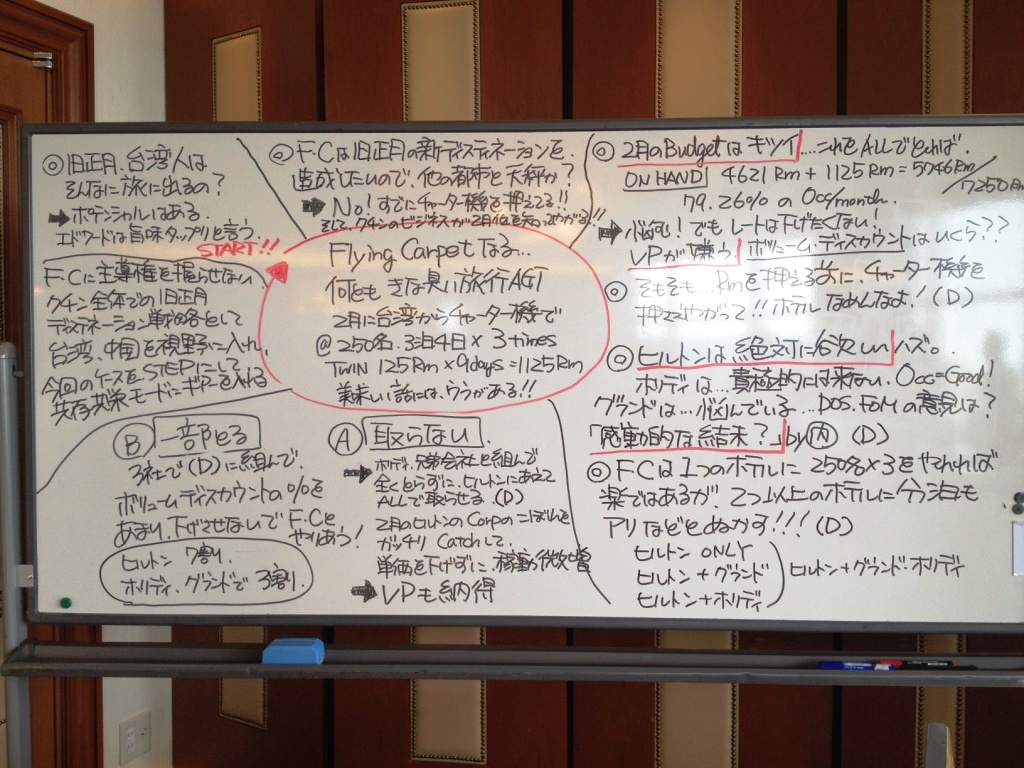 ◎旧正月、台湾人は
そんなに旅に出るの?
➡ポテンシャルはある。
エドワードは旨味タップリと言う。
FCに主導権を握らせない
クチン全体での旧正月
ディスティネーション戦略として
台湾、中国を視野に入れ、
今回のケースをSTEPにして
共存共栄モードにギアーを入れる
◎F・Cは旧正月の新ディスティネーションを、
造成したいので、他の都市と天秤か?
➡No!すでにチャーター機を押えてる!!
そして、クチンのビジネスが2月低を知ってやがる!!
START!!
Flying Carpetなる…
何とも きな臭い旅行AGT
2月に台湾からチャーター機で
@250名、3泊4日×3times
TWIN 125Rm×9days=1125Rm
美味い話には、ウラがある!!
◎2月のBudgetはキツイ…これをALLでとれば、
ON HAND 4621Rm+1125Rm=5746Rm/7250Rm
79.26%の Occ/month.
➡悩む!でもレートは下げたくない!
VPが嫌う ボリュームディスカウントはいくら??
◎そもそも…Rmを押える前に、チャーター機を
押えやがって!!ホテルなめんなよ!(D)
◎ヒルトンは絶対に欲しいハズ。
ホリディは…積極的には来ない、Occ=Good!
グランドは…悩んでいる…DOS.FOMの意見は?
「感動的な結末?」by 内 (D)
◎FCは1つのホテルに250名×3をやれれば
楽ではあるが、2つ以上のホテルに分泊も
アリなどとぬかす!!!(D)
ヒルトン ONLY
ヒルトン+グランド
ヒルトン+ホリディ
ヒルトン+グランド・ホリディ
Ⓐ 取らない
➡ホリディ、兄弟会社と組んで
全くとらずに、ヒルトンにあえて
ALLで取らせる(D)
2月のヒルトンのCarpのこぼれを
ガッチリ Catchして、
単価を下げずに、稼動微増
➡VPも納得
Ⓑ 一部とる
3社で(D)に組んで、
ボリュームディスカウントの%を
あまり下げさせないでF.Cと
やりあう!
ヒルトン 7割り、
ホリディ、グランドで3割り、